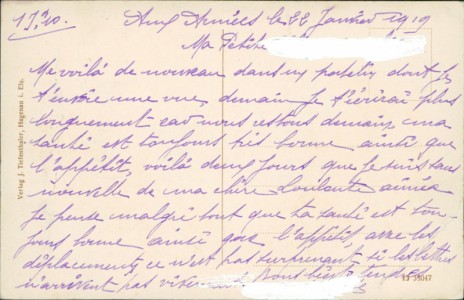 17h20. Aux Armées le 22 Janvier 1919
Ma Petite
Me voilà de nouveau dans un patelin dont je
t'envoie une vue, demain je t'écrirai plus
longuement car nous restons demain, ma
santé est toujours très bonne ainsi que
l'appétit, voilà deux jours que je suis sans
nouvelle de ma chère Louloute aimée
Je pense malgré tout que ta santé est tou-
jours bonne ainsi que l'appétit, avec les
déplacements ce n'est pas surprenant si les lettres
n'arrivent pas vite Bons tendres
Verlag J. Tiefenthaler, Hagenau i. Els.